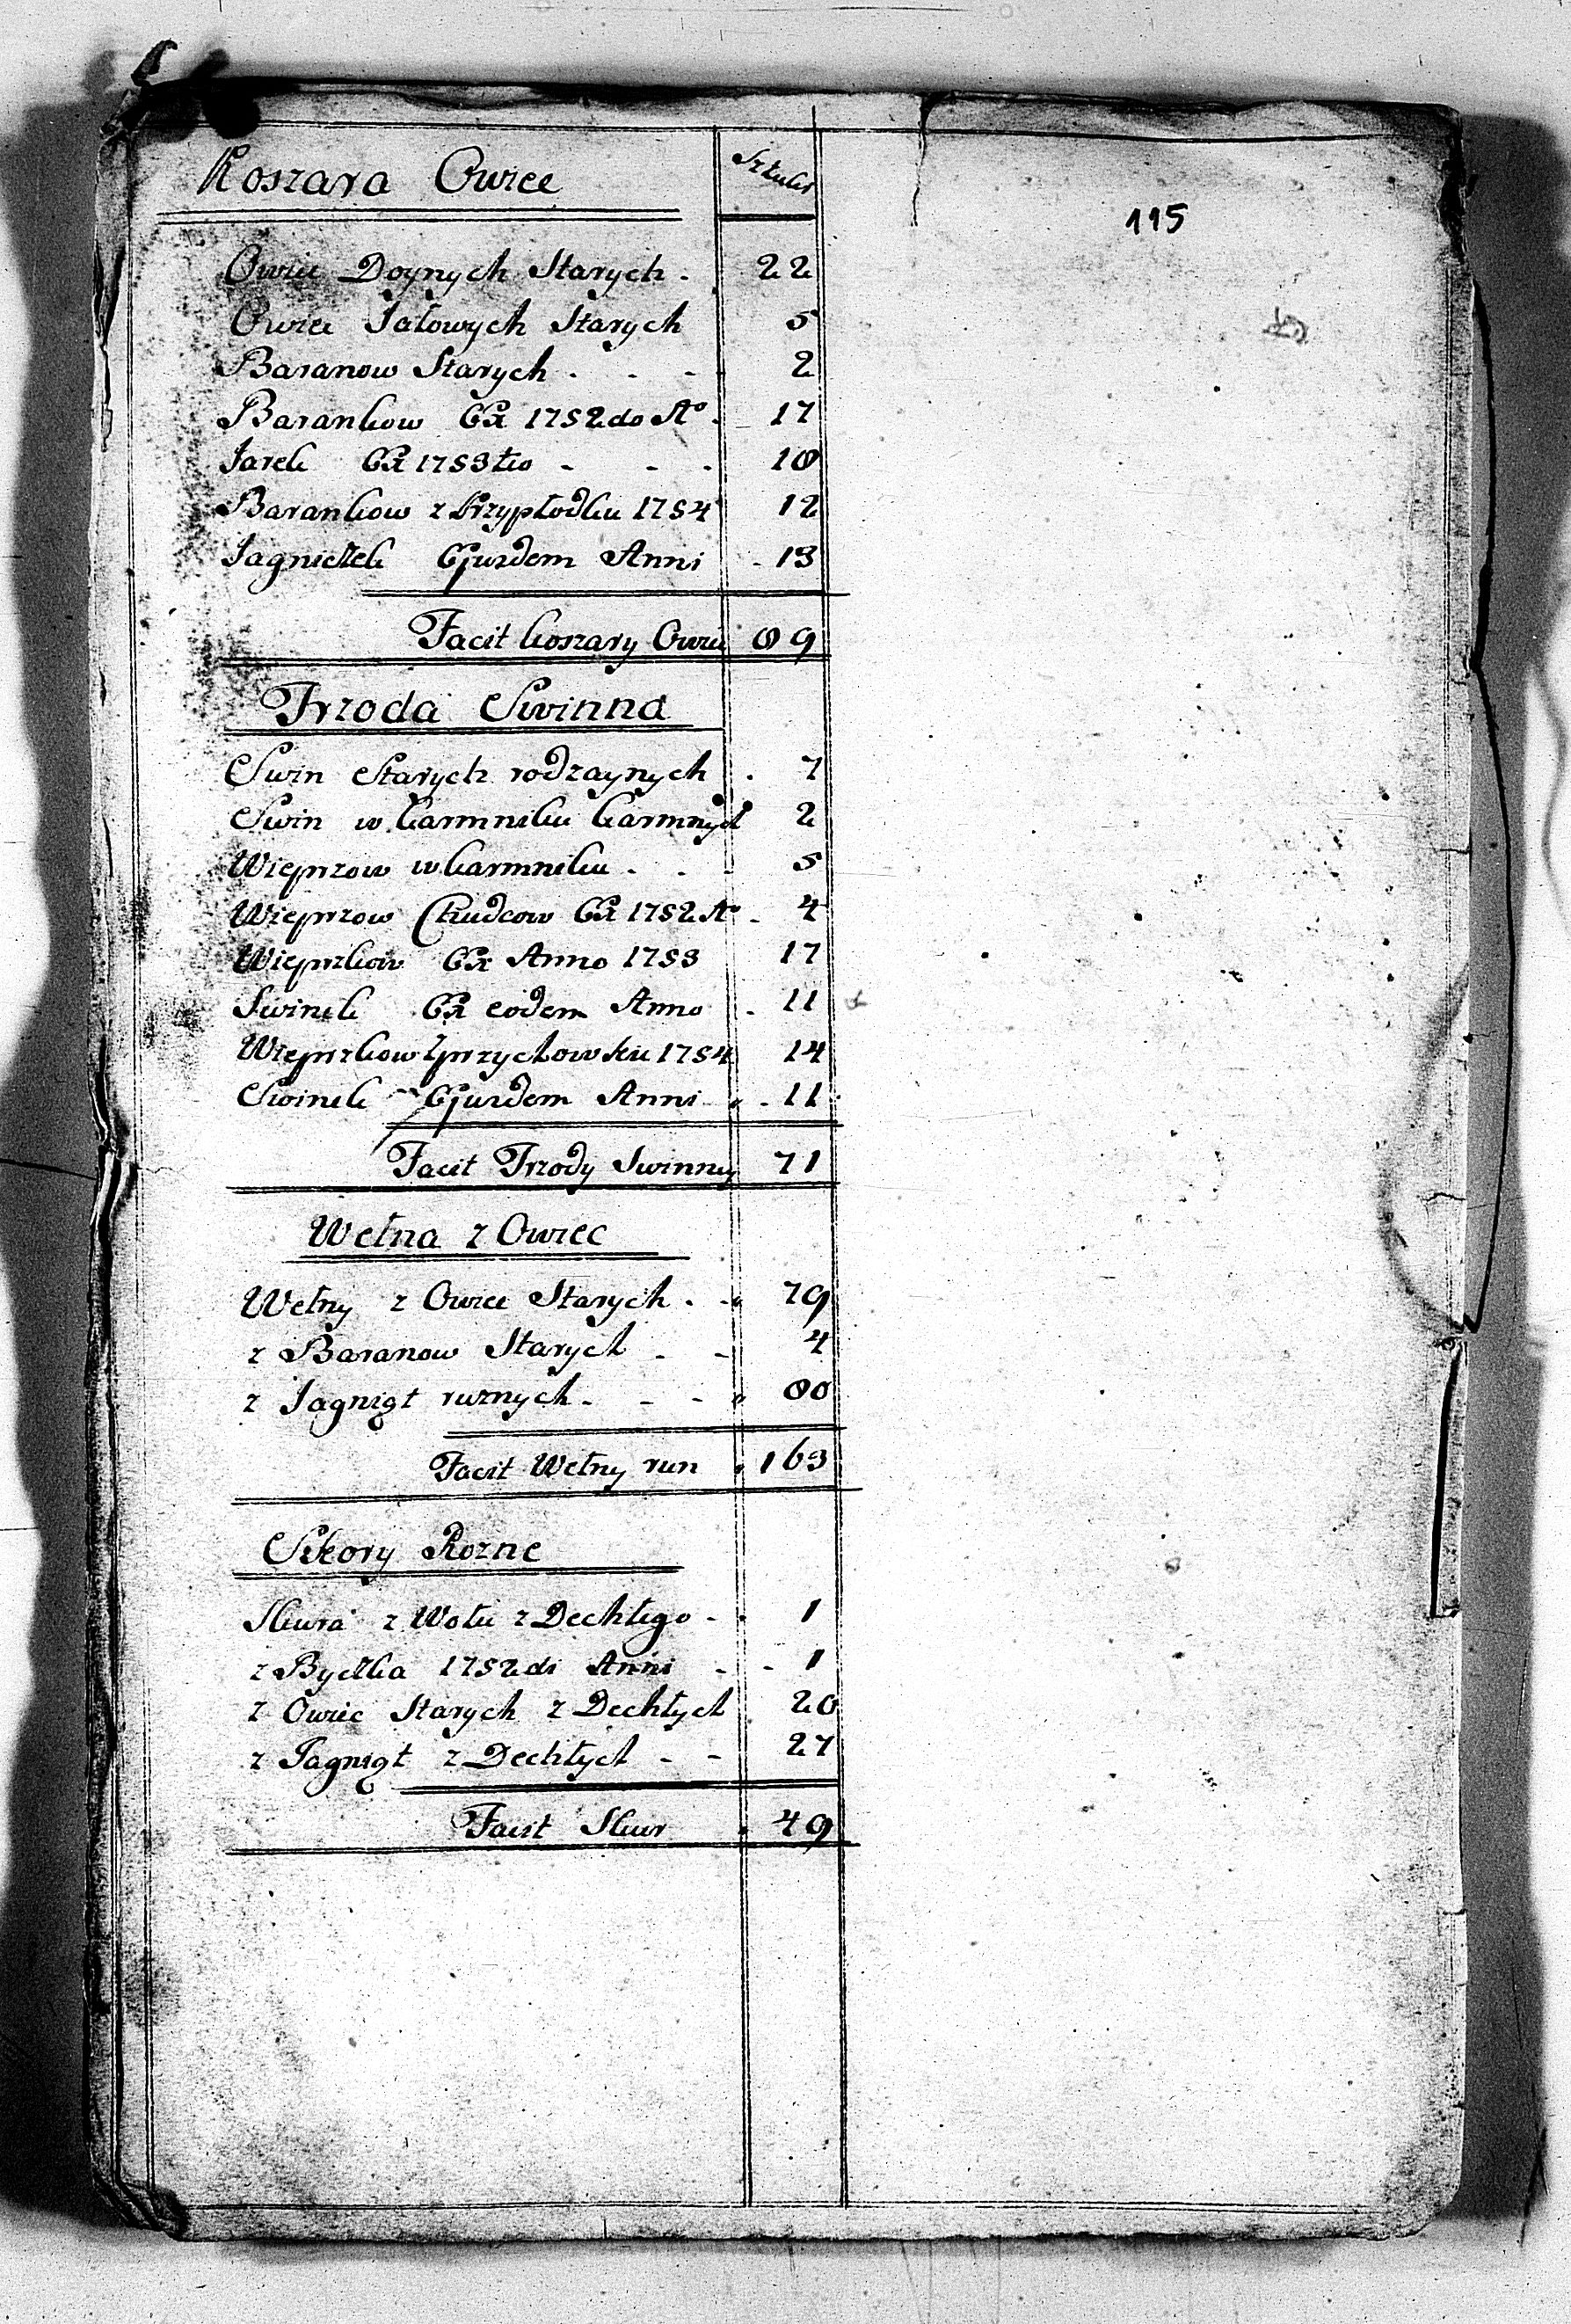 Koszara Owiec Sztuki
115
Owiec Doynych Starych . 22
Owiec Jałowych Starych 5
Baranow Starych . - - - 2
Barankow Ex 1752do Aº . 17
Jarek Ex 1753tio - - - 18
Barankow z Przypłodku 1754 12
Jagniczek Ejusdem Anni . 13
Facit koszary Owiec 89
Trzoda Swinna
Swin Starych rodzaynych . 7
Swin w karmniku karmnych 2
Wieprzow w karmniku . . - 5
Wieprzow Chudcow Ex 1752 Aº . 4
Wieprzkow Ex Anno 1753 17
Swinek Ex eodem Anno . 11
Wieprzkow z przychowku 1754 14
Swinek Ejusdem Anni . 11
Facit Trzody Swinney 71
Wełna z Owiec
Wełny z Owiec Starych . - 79
z Baranow Starych - - 4
z Jagniąt ruznych . - - 80
Facit Wełny run 163
Skory Rozne
Skura z Wołu zDechłego - . 1
z Byczka 1752di Anni - - 1
z Owiec Starych zDechłych 20
z Jagniąt zDechłych - - 27
Facit Skur 49